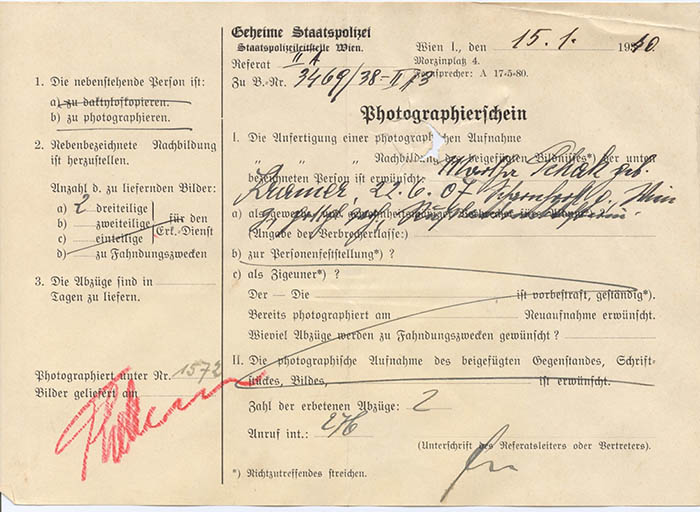 Geheime Staatspolizei
Staatspolizeileitstelle Wien.
Referat II A
Zu B.-Nr. 3469/38-II A/3
Wien I., den 15. 1. 1940
Morzinplatz 4.
Fernsprecher: A 17-5-80.
1. Die nebenstehende Person ist:
a) zu daktyloskopieren.
b) zu photographieren.
2. Nebenbezeichnete Nachbildung
ist herzustellen.
Anzahl d. zu liefernden Bilder:
a) 2 dreiteilige
b) zweiteilige
c) einteilige
für den
Erk.-Dienst
d) zu Fahndungszwecken
3. Die Abzüge sind in
Tagen zu liefern.
Photographiert unter Nr. 1572
Bilder geliefert am
Photographierschein
I. Die Anfertigung einer photographischen Aufnahme
„ „ Nachbildung des beigefügten Bildnisses*) der unten
bezeichneten Person ist erwünscht: Martha geb.
Kramer, 22.6.07 Wien
a) als
(Angabe der Verbrecherklasse:)
b) zur Personenfeststellung*) ?
c) als Zigeuner*) ?
Der – Die ist vorbestraft, geständig*).
Bereits photographiert am Neuaufnahme erwünscht.
Wieviel Abzüge werden zu Fahndungszwecken gewünscht ?
II. Die photographische Aufnahme des beigefügten Gegenstandes, Schrift-
stückes, Bildes, ist erwünscht.
Zahl der erbetenen Abzüge: 2
Anruf int.: 276
(Unterschrift des Referatsleiters oder Vertreters).
*) Nichtzutreffendes streichen.